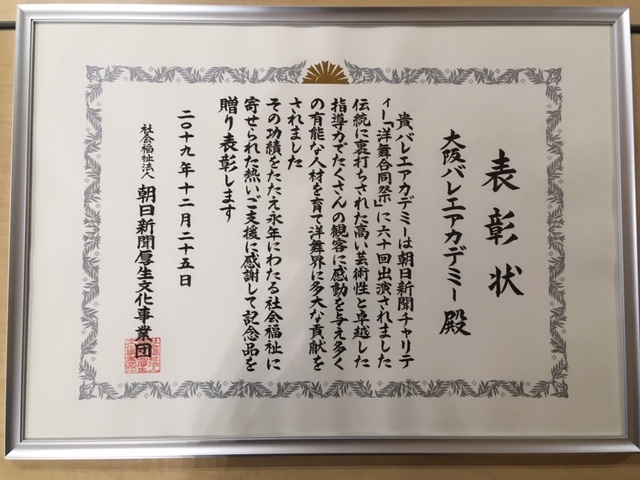 表彰状
大阪バレエアカデミー殿
貴バレエアカデミーは朝日新聞チャリテ
ィー「洋舞合同祭」に六十回出演されました
伝統に裏打ちされた高い芸術性と卓越した
指導力でたくさんの観客に感動を与え多く
の有能な人材を育て洋舞界に多大な貢献を
されました
その功績をたたえ永年にわたる社会福祉に
寄せられた熱いご支援に感謝して記念品を
贈り表彰します
二〇十九年十二月二十五日
社会福祉法人 朝日新聞厚生文化事業団